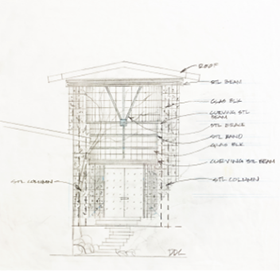 ROOF
STL BEAM
GLAS BLK
CURVING STL
BEAM
STL BRACE
STL BAND
GLAS BLK
CURVING STL BEAM
STL COLUMN
STL COLUMN